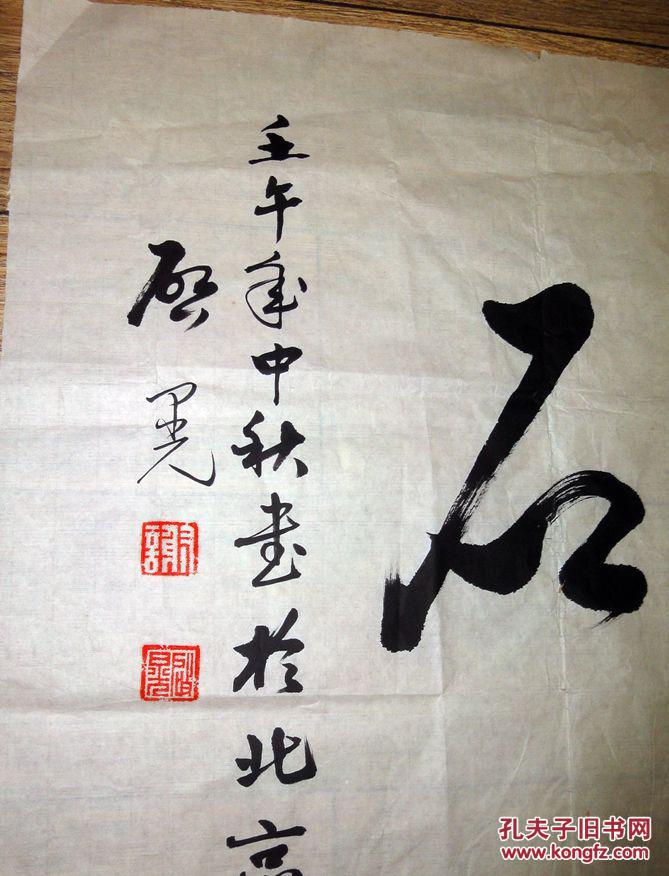 壬午年中秋書於北京
启晃
謝
孔夫子旧书网
www.kongfz.com